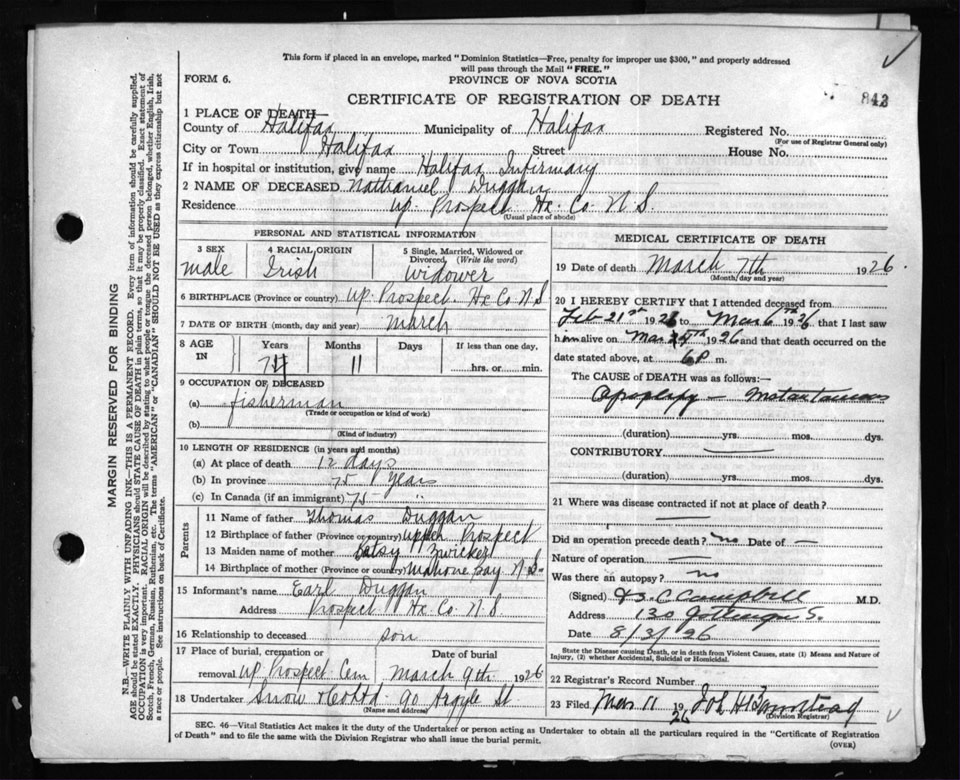 This form if placed in an envelope, marked "Dominion Statistics—Free, penalty for improper use $300," and properly addressed
will pass through the Mail "FREE."
FORM 6.
PROVINCE OF NOVA SCOTIA
CERTIFICATE OF REGISTRATION OF DEATH
843
1 PLACE OF DEATH—
County of Halifax Municipality of Halifax Registered No.
(For use of Registrar General only)
City or Town Halifax Street House No.
If in hospital or institution, give name Halifax Infirmary
2 NAME OF DECEASED Nathaniel Duggan
Residence Up. Prospect Hx. Co N.S.
(Usual place of abode)
PERSONAL AND STATISTICAL INFORMATION
3 SEX
male
4 RACIAL ORIGIN
Irish
5 Single, Married, Widowed or
Divorced, (Write the word)
widower
6 BIRTHPLACE (Province or country) Up. Prospect. Hx Co N S
7 DATE OF BIRTH (month, day and year) March
8 AGE
IN
Years Months Days If less than one day,
74 11 hrs. or min.
9 OCCUPATION OF DECEASED
(a) fisherman
(Trade or occupation or kind of work)
(b)
(Kind of industry)
10 LENGTH OF RESIDENCE (in years and months)
(a) At place of death 12 days
(b) In province 75 years
(c) In Canada (if an immigrant) 75 "
Parents
11 Name of father Thomas Duggan
12 Birthplace of father (Province or country) Upper Prospect
13 Maiden name of mother Betsy Zwicker
14 Birthplace of mother (Province or country) Mahone Bay N.S.
15 Informant's name Earl Duggan
Address Prospect Hx Co N.S
16 Relationship to deceased son
17 Place of burial, cremation or Date of burial
removal Up Prospect Cem March 9th 1926
18 Undertaker Snow & Co Ltd 90 Argyle St
(Name and address)
MEDICAL CERTIFICATE OF DEATH
19 Date of death March 7th 1926.
(Month, day and year)
20 I HEREBY CERTIFY that I attended deceased from
Feb 21st 1926 to Mar 6th 1926 that I last saw
him alive on Mar 1926 and that death occurred on the
date stated above, at 6 P m.
The CAUSE OF DEATH was as follows:—
Apoplexy — Instantaneous
(duration) yrs. mos. dys.
CONTRIBUTORY
(duration) yrs. mos. dys.
21 Where was disease contracted if not at place of death?
Did an operation precede death? no Date of —
Nature of operation —
Was there an autopsy? no
(Signed) C Campbell M.D.
Address 130 Gottingen S.
Date 8/3/26
State the Disease causing Death, or in death from Violent Causes, state (1) Means and Nature of
Injury, (2) whether Accidental, Suicidal or Homicidal.
22 Registrar's Record Number
23 Filed Mar 11 1926
(Division Registrar)
SEC. 46—Vital Statistics Act makes it the duty of the Undertaker or person acting as Undertaker to obtain all the particulars required in the "Certificate of Registration
of Death" and to file the same with the Division Registrar who shall issue the burial permit.
(OVER)
MARGIN RESERVED FOR BINDING
N.B.—WRITE PLAINLY WITH UNFADING INK—THIS IS A PERMANENT RECORD. Every item of information should be carefully supplied.
AGE should be stated EXACTLY. PHYSICIANS should STATE CAUSE OF DEATH in plain terms, so that it may be properly classified. Exact statement of
OCCUPATION is very important. RACIAL ORIGIN will be described by stating to what people or tongue the deceased person belonged, whether English, Irish,
Scotch, French, German, Russian, Ruthenian, etc. The terms "AMERICAN" or "CANADIAN" SHOULD NOT BE USED as they express citizenship but not
a race or people. See instructions on back of Certificate.